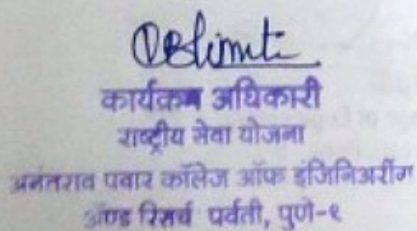 कार्यक्रम अधिकारी
राष्ट्रीय सेवा योजना
अनंतराव पवार कॉलेज ऑफ इंजिनिअरींग
ॲण्ड रिसर्च पर्वती, पुणे-९